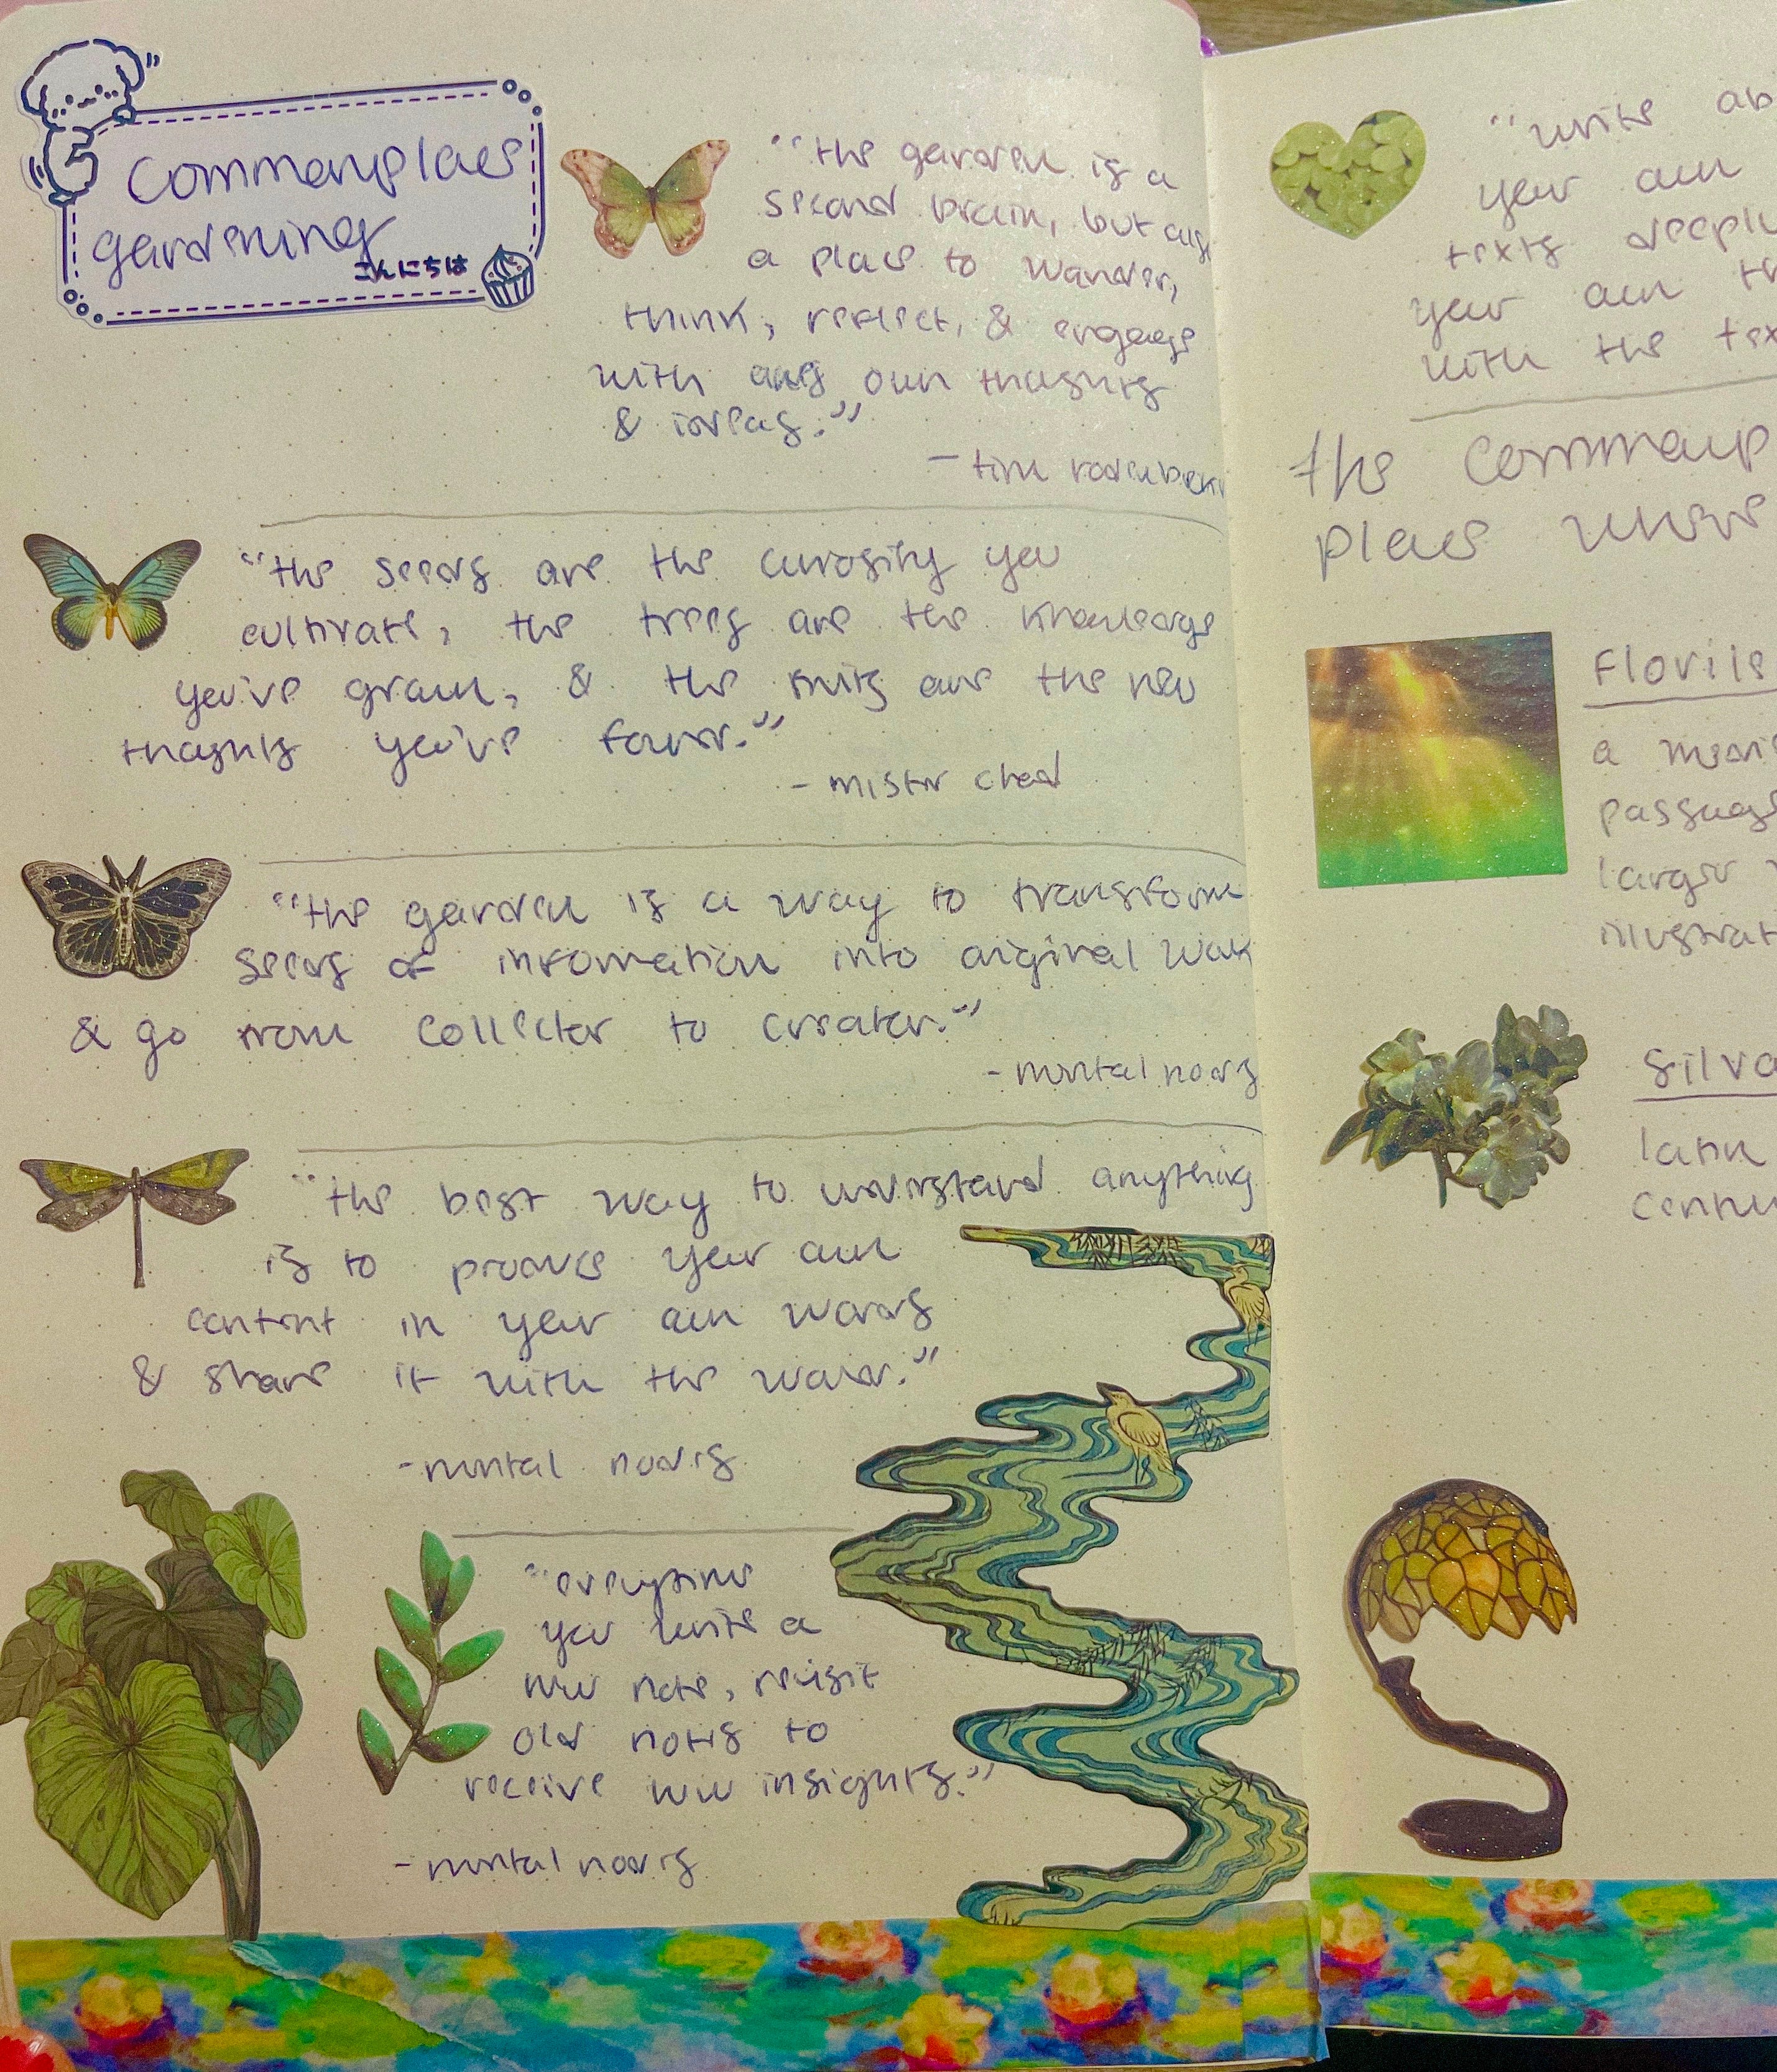 Commonplace
gardening
こんにちは
"the garden is a
second brain, but also
a place to wander,
think, reflect, & engage
with our own thoughts
& ideas."
- tim
"the seeds are the curiosity you
cultivate, the trees are the knowledge
you've grown, & the fruits are the new
thoughts you've found."
- mister chad
"the garden is a way to transform
seeds of information into original work
& go from collector to creator."
- mental nodes
"the best way to understand anything
is to produce your own
content in your own words
& share it with the world."
- mental nodes
"everytime
you write a
new note, revisit
old notes to
receive new insights."
- mental nodes
"write ab
your own
texts deeply
your own th
with the tex
the commonp
place
Florile
a medi
passage
larger
illustrat
Silva
latin
centu